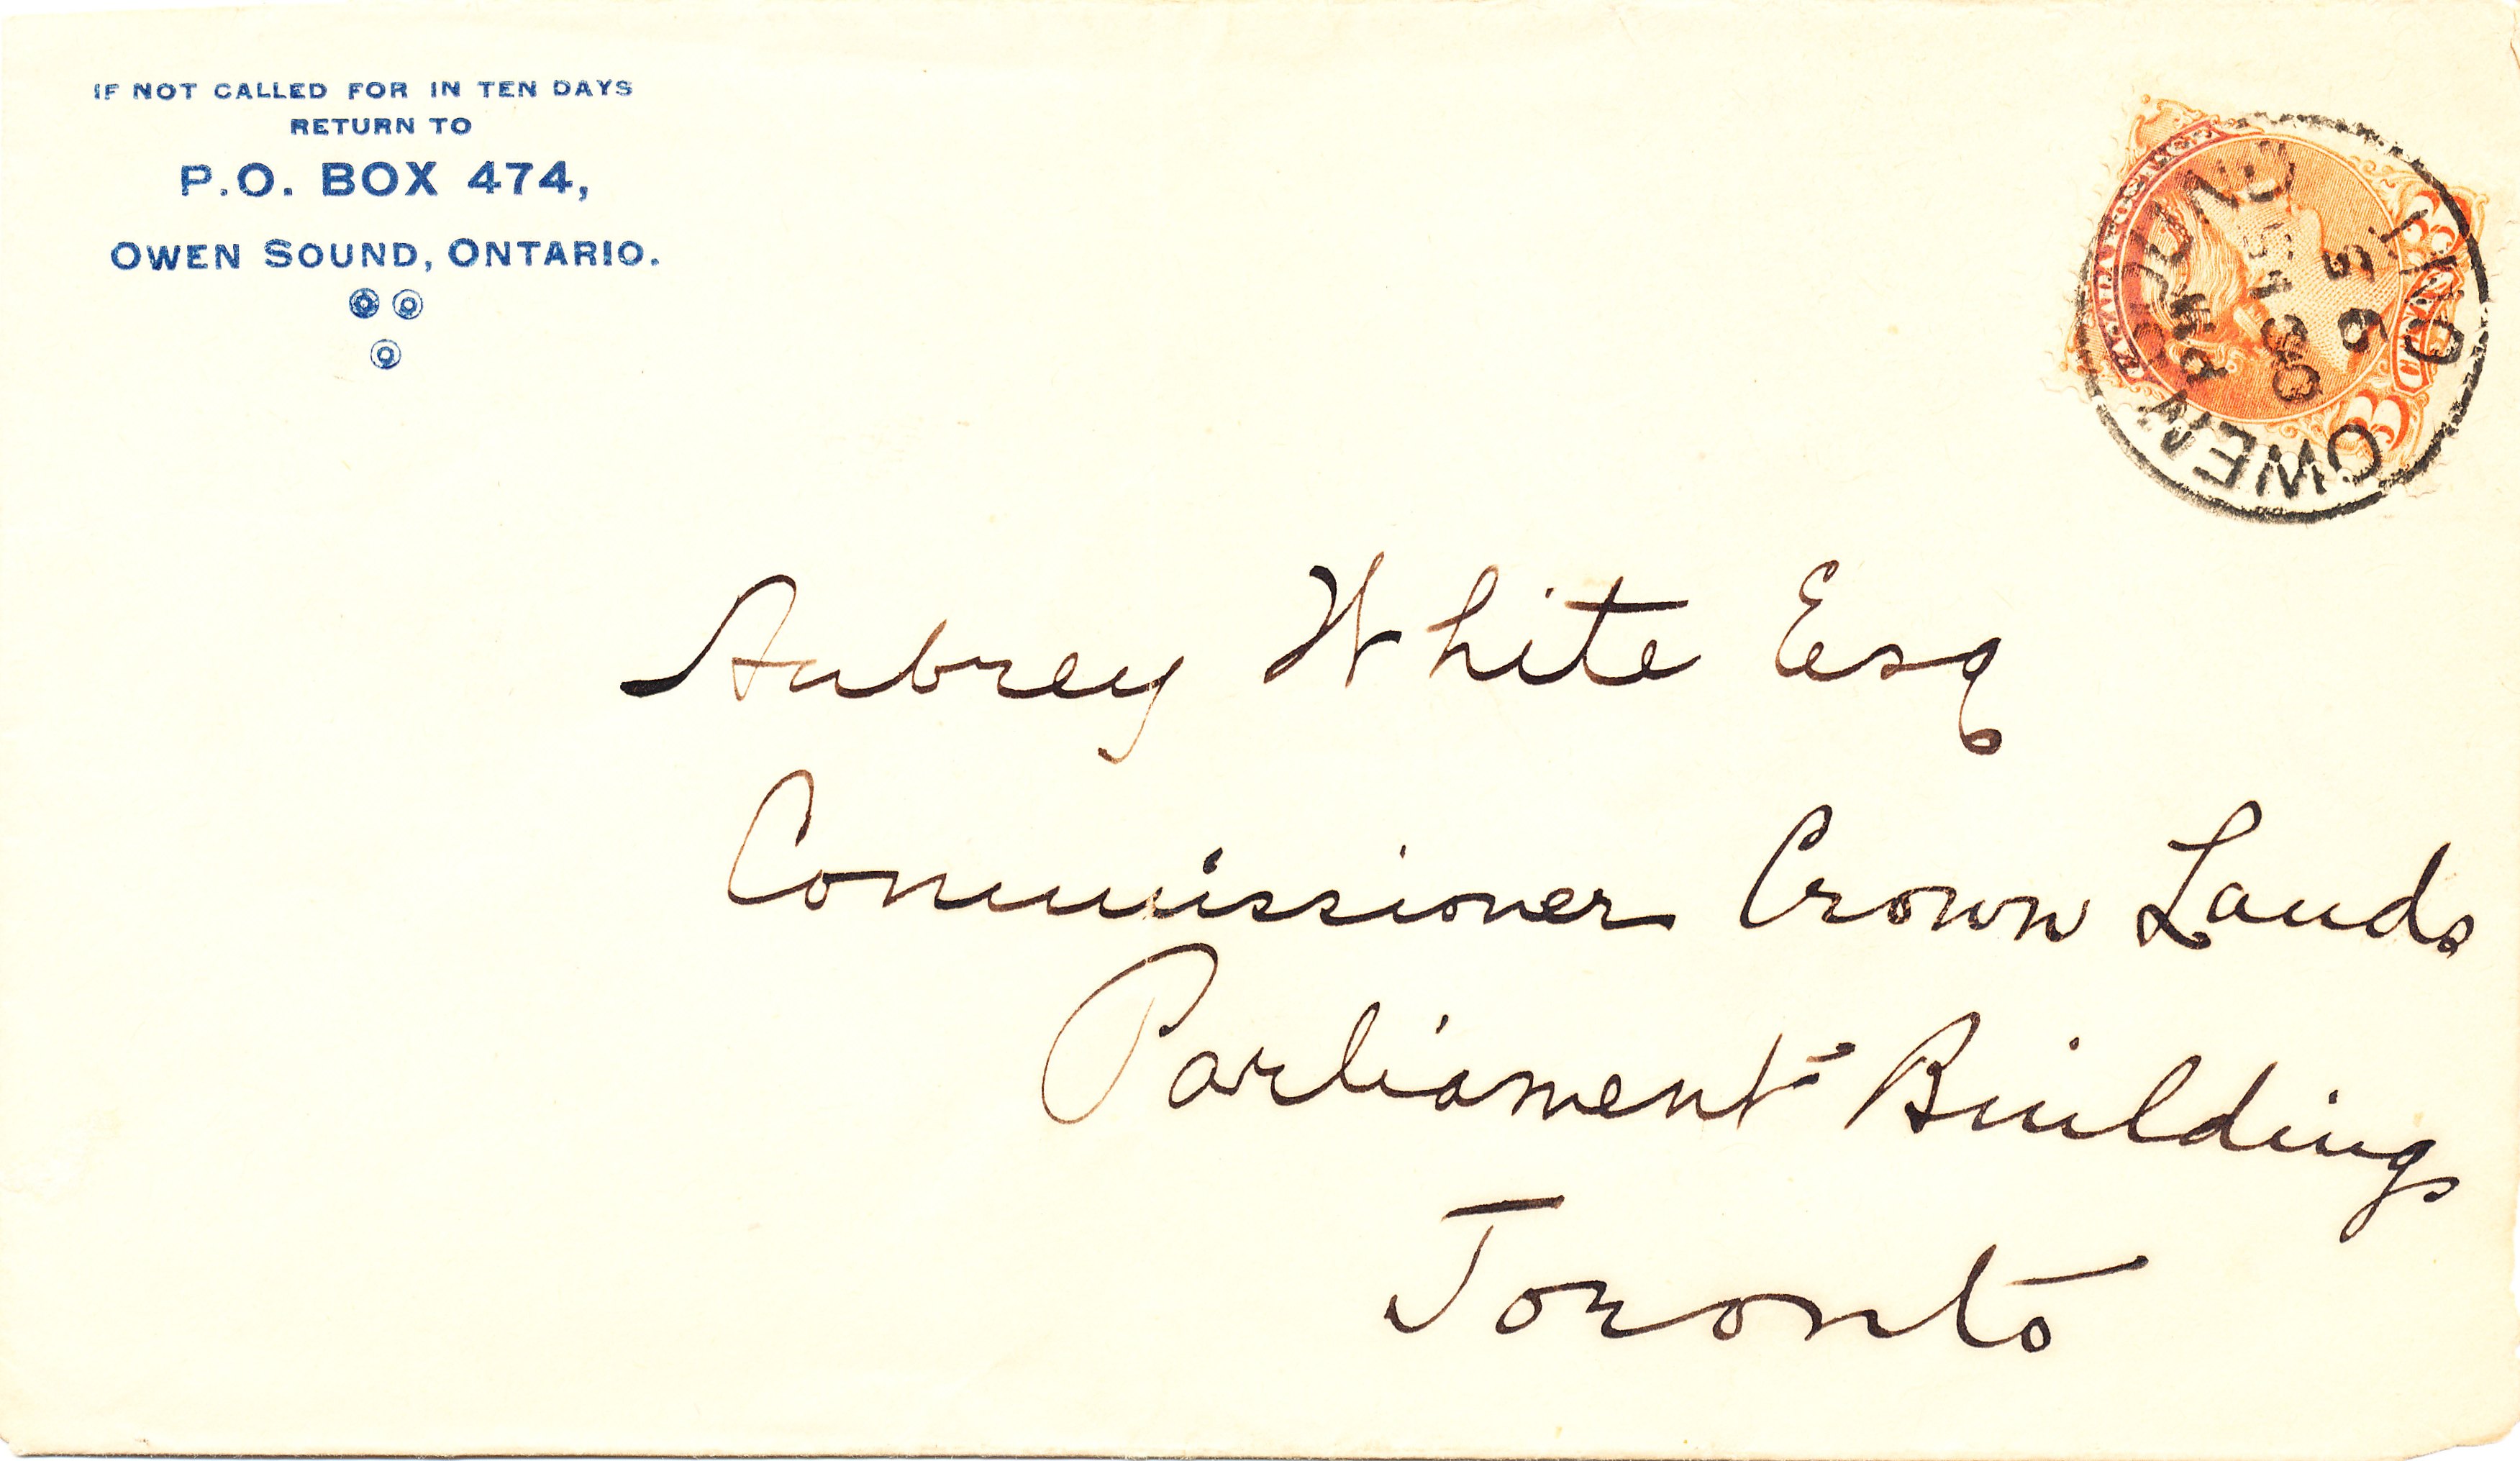 IF NOT CALLED FOR IN TEN DAYS
RETURN TO
P.O. BOX 474,
OWEN SOUND, ONTARIO.
CANADA POSTAGE
3 CENTS 3
OWEN SOUND
PM
30
6
ONT
Aubrey White Esq
Commissioner Crown Lands
Parliament Buildings
Toronto